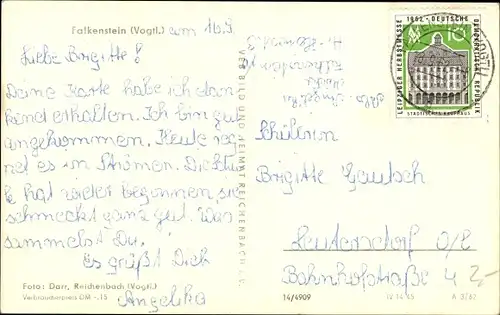 Falkenstein (Vogtl.) am 16.9.
Liebe Brigitte!
Deine Karte habe ich dan
kend erhalten. Ich bin gut
angekommen. Heute reg
net es in Strömen. Die Schu
le hat wieder begonnen, sie
schmeckt ganz gut. Was
sammelst Du.
Es grüßt Dich
Angelika
Foto: Darr, Reichenbach (Vogtl.)
Verbraucherpreis DM -,15
VEB BILD UND HEIMAT REICHENBACH i. V.
14/4909
LEIPZIGER HERBSTMESSE
1962 · DEUTSCHE
DEMOKRATISCHE REPUBLIK
10
STÄDTISCHES KAUFHAUS
Schülerin
Brigitte
Leutersdorf O/L
Bahnhofstraße 42
IV 14 45
A 3762
2,-